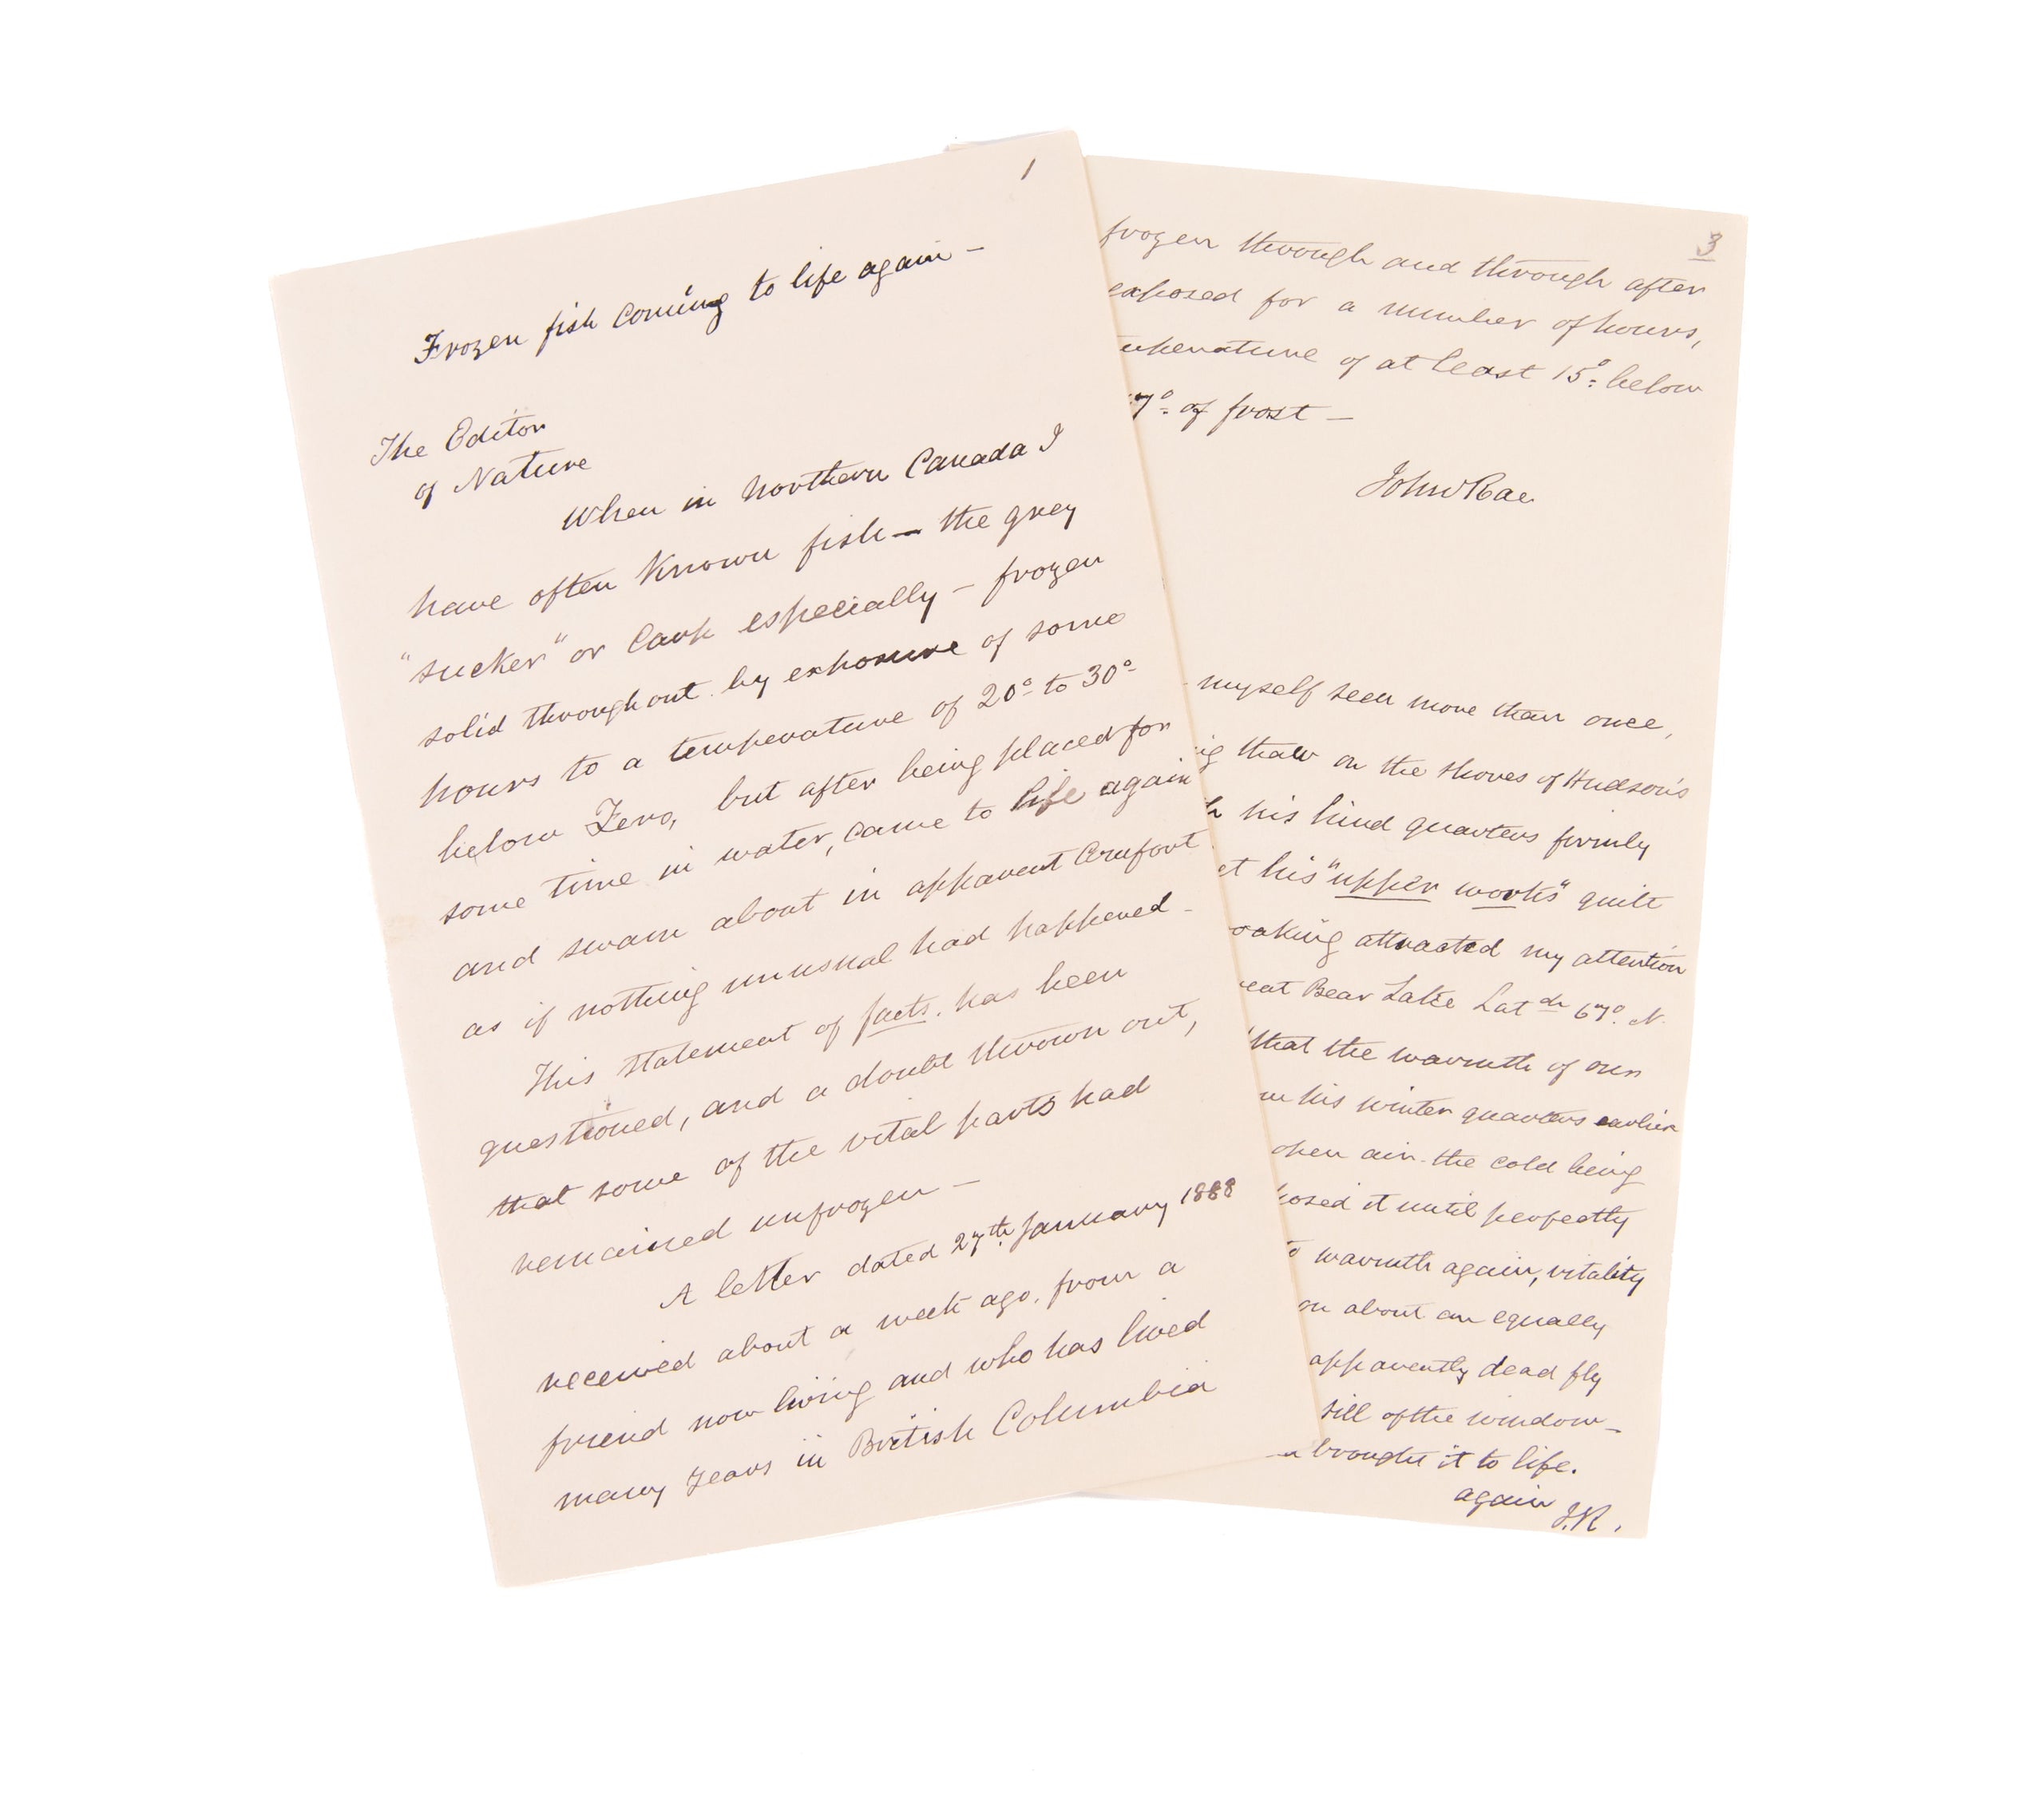 1
Frozen fish coming to life again —
The Editor
of Nature
When in northern Canada I
have often known fish — the grey
"sucker" or Carp especially — frozen
solid throughout by exposure of some
hours to a temperature of 20° to 30°
below Zero, but after being placed for
some time in water, came to life again
and swam about in apparent comfort
as if nothing unusual had happened —
This statement of facts. has been
questioned, and a doubt thrown out,
that some of the vital parts had
remained unfrozen —
A letter dated 27th January 1888
received about a week ago. from a
friend now living and who has lived
many years in British Columbia
3
frozen through and through after
exposed for a number of hours,
of at least 15° below
7° of frost —
John Rae
myself seen more than once,
thaw on the shores of Hudson's
his hind quarters firmly
his "upper works" quite
attracted my attention
Bear Lake Latde 67° N.
that the warmth of our
his winter quarters earlier
open air. the cold being
it until perfectly
warmth again, vitality
about an equally
apparently dead fly
sill of the window —
brought it to life.
again J.R.